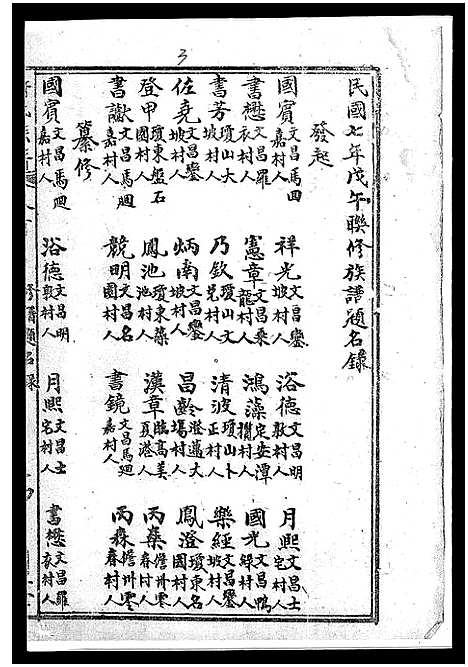 3
民國七年戊午聯修族譜題名錄
發起
國賓文昌馬回嘉村人 祥光文昌鑾坡村人 浴德文昌明敦村人 月熙文昌士宅村人
書懋文昌羅衣村人 憲章文昌乘龍村人 鴻藻定安潭攬村人 國光文昌鴨綠村人
書芳瓊山大坡村人 乃欽瓊山文村人 清波瓊山卜正村人 樂經文昌鑾坡村人
佐堯文昌鑾坡村人 炳南文昌鑾坡村人 昌齡澄邁大場村人 鳳澄瓊東名園村人
登甲瓊東盤石園村人 鳳池瓊東藥池村人 漢章臨高美夏港人 丙燊儋州零春村人
書猷文昌馬迴嘉村人 競明文昌名園村人 書鏡文昌馬迴嘉村人 丙森儋州零春村人
纂修
國賓文昌馬迴嘉村人 浴德文昌明敦村人 月熙文昌士宅村人 書懋文昌羅衣村人
修譜題名錄